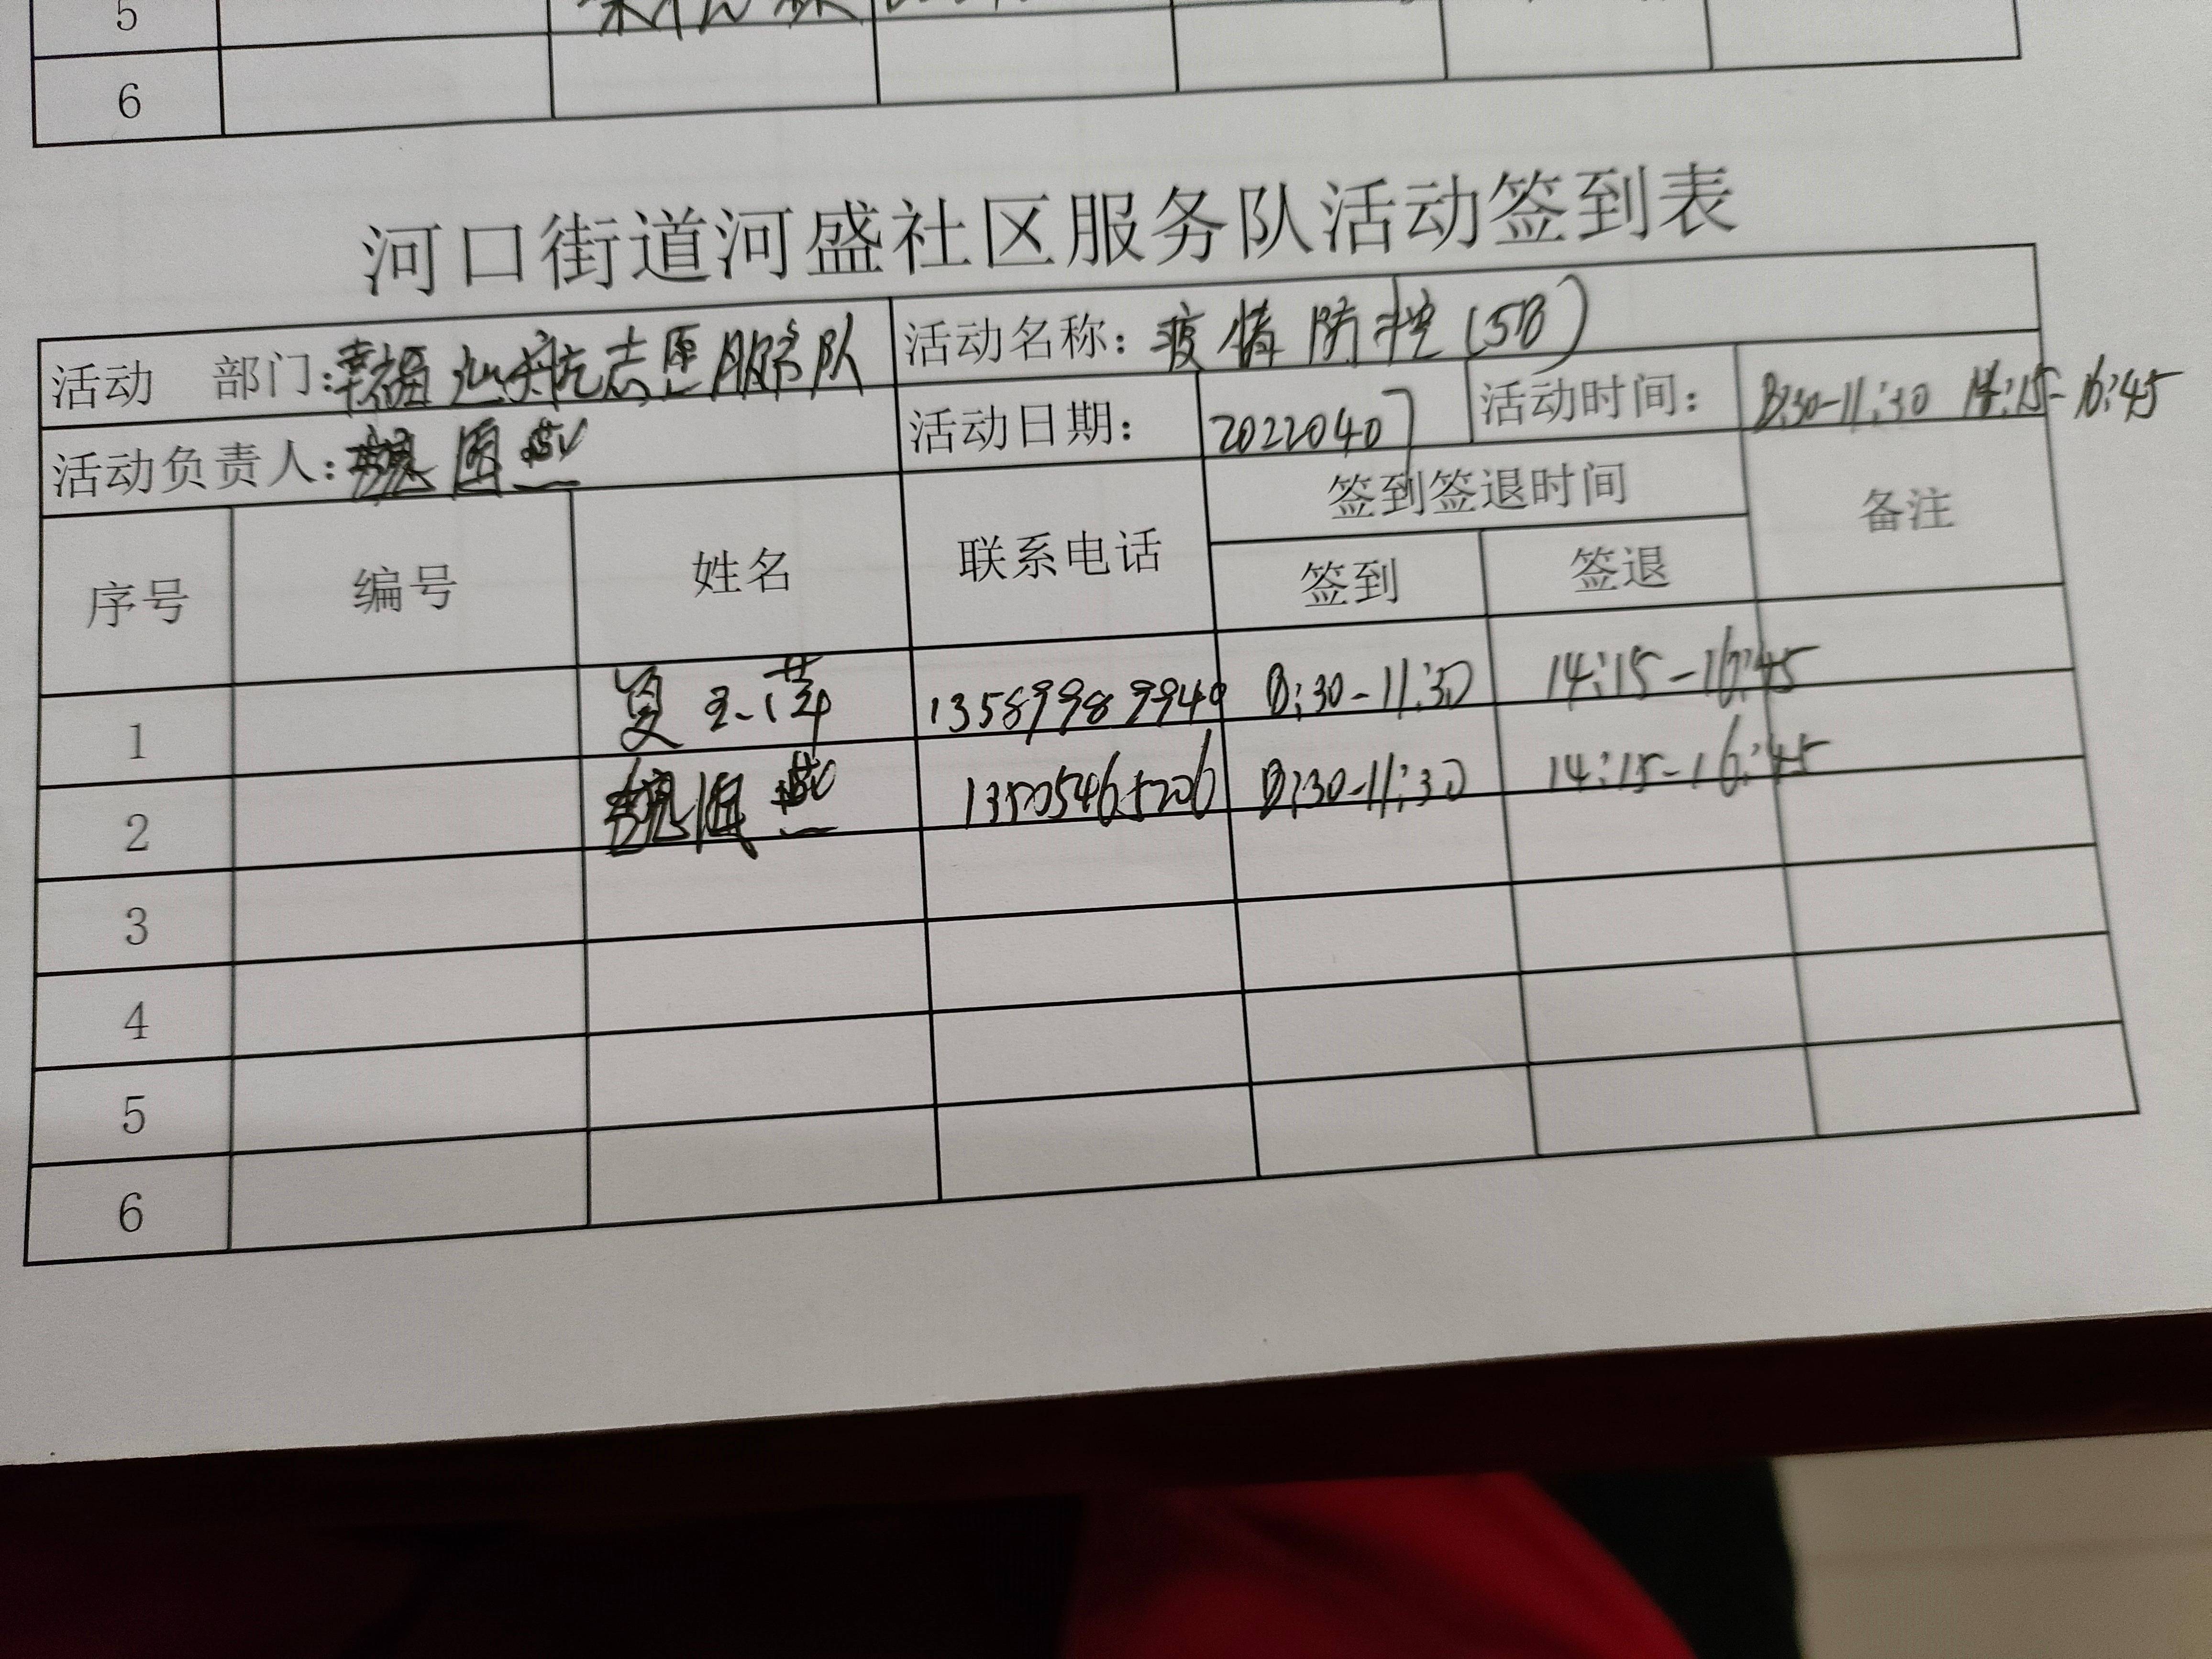 5
6
河口街道河盛社区服务队活动签到表
活动 部门:幸福启航志愿服务队 活动名称:疫情防控(5B)
活动负责人:魏 燕 活动日期: 20220407 活动时间: 8:30-11:30 14:15-16:45
序号 编号 姓名 联系电话 签到签退时间 备注
签到 签退
1 13589989940 8:30-11:30 14:15-16:45
2 魏 燕 13505465206 8:30-11:30 14:15-16:45
3
4
5
6